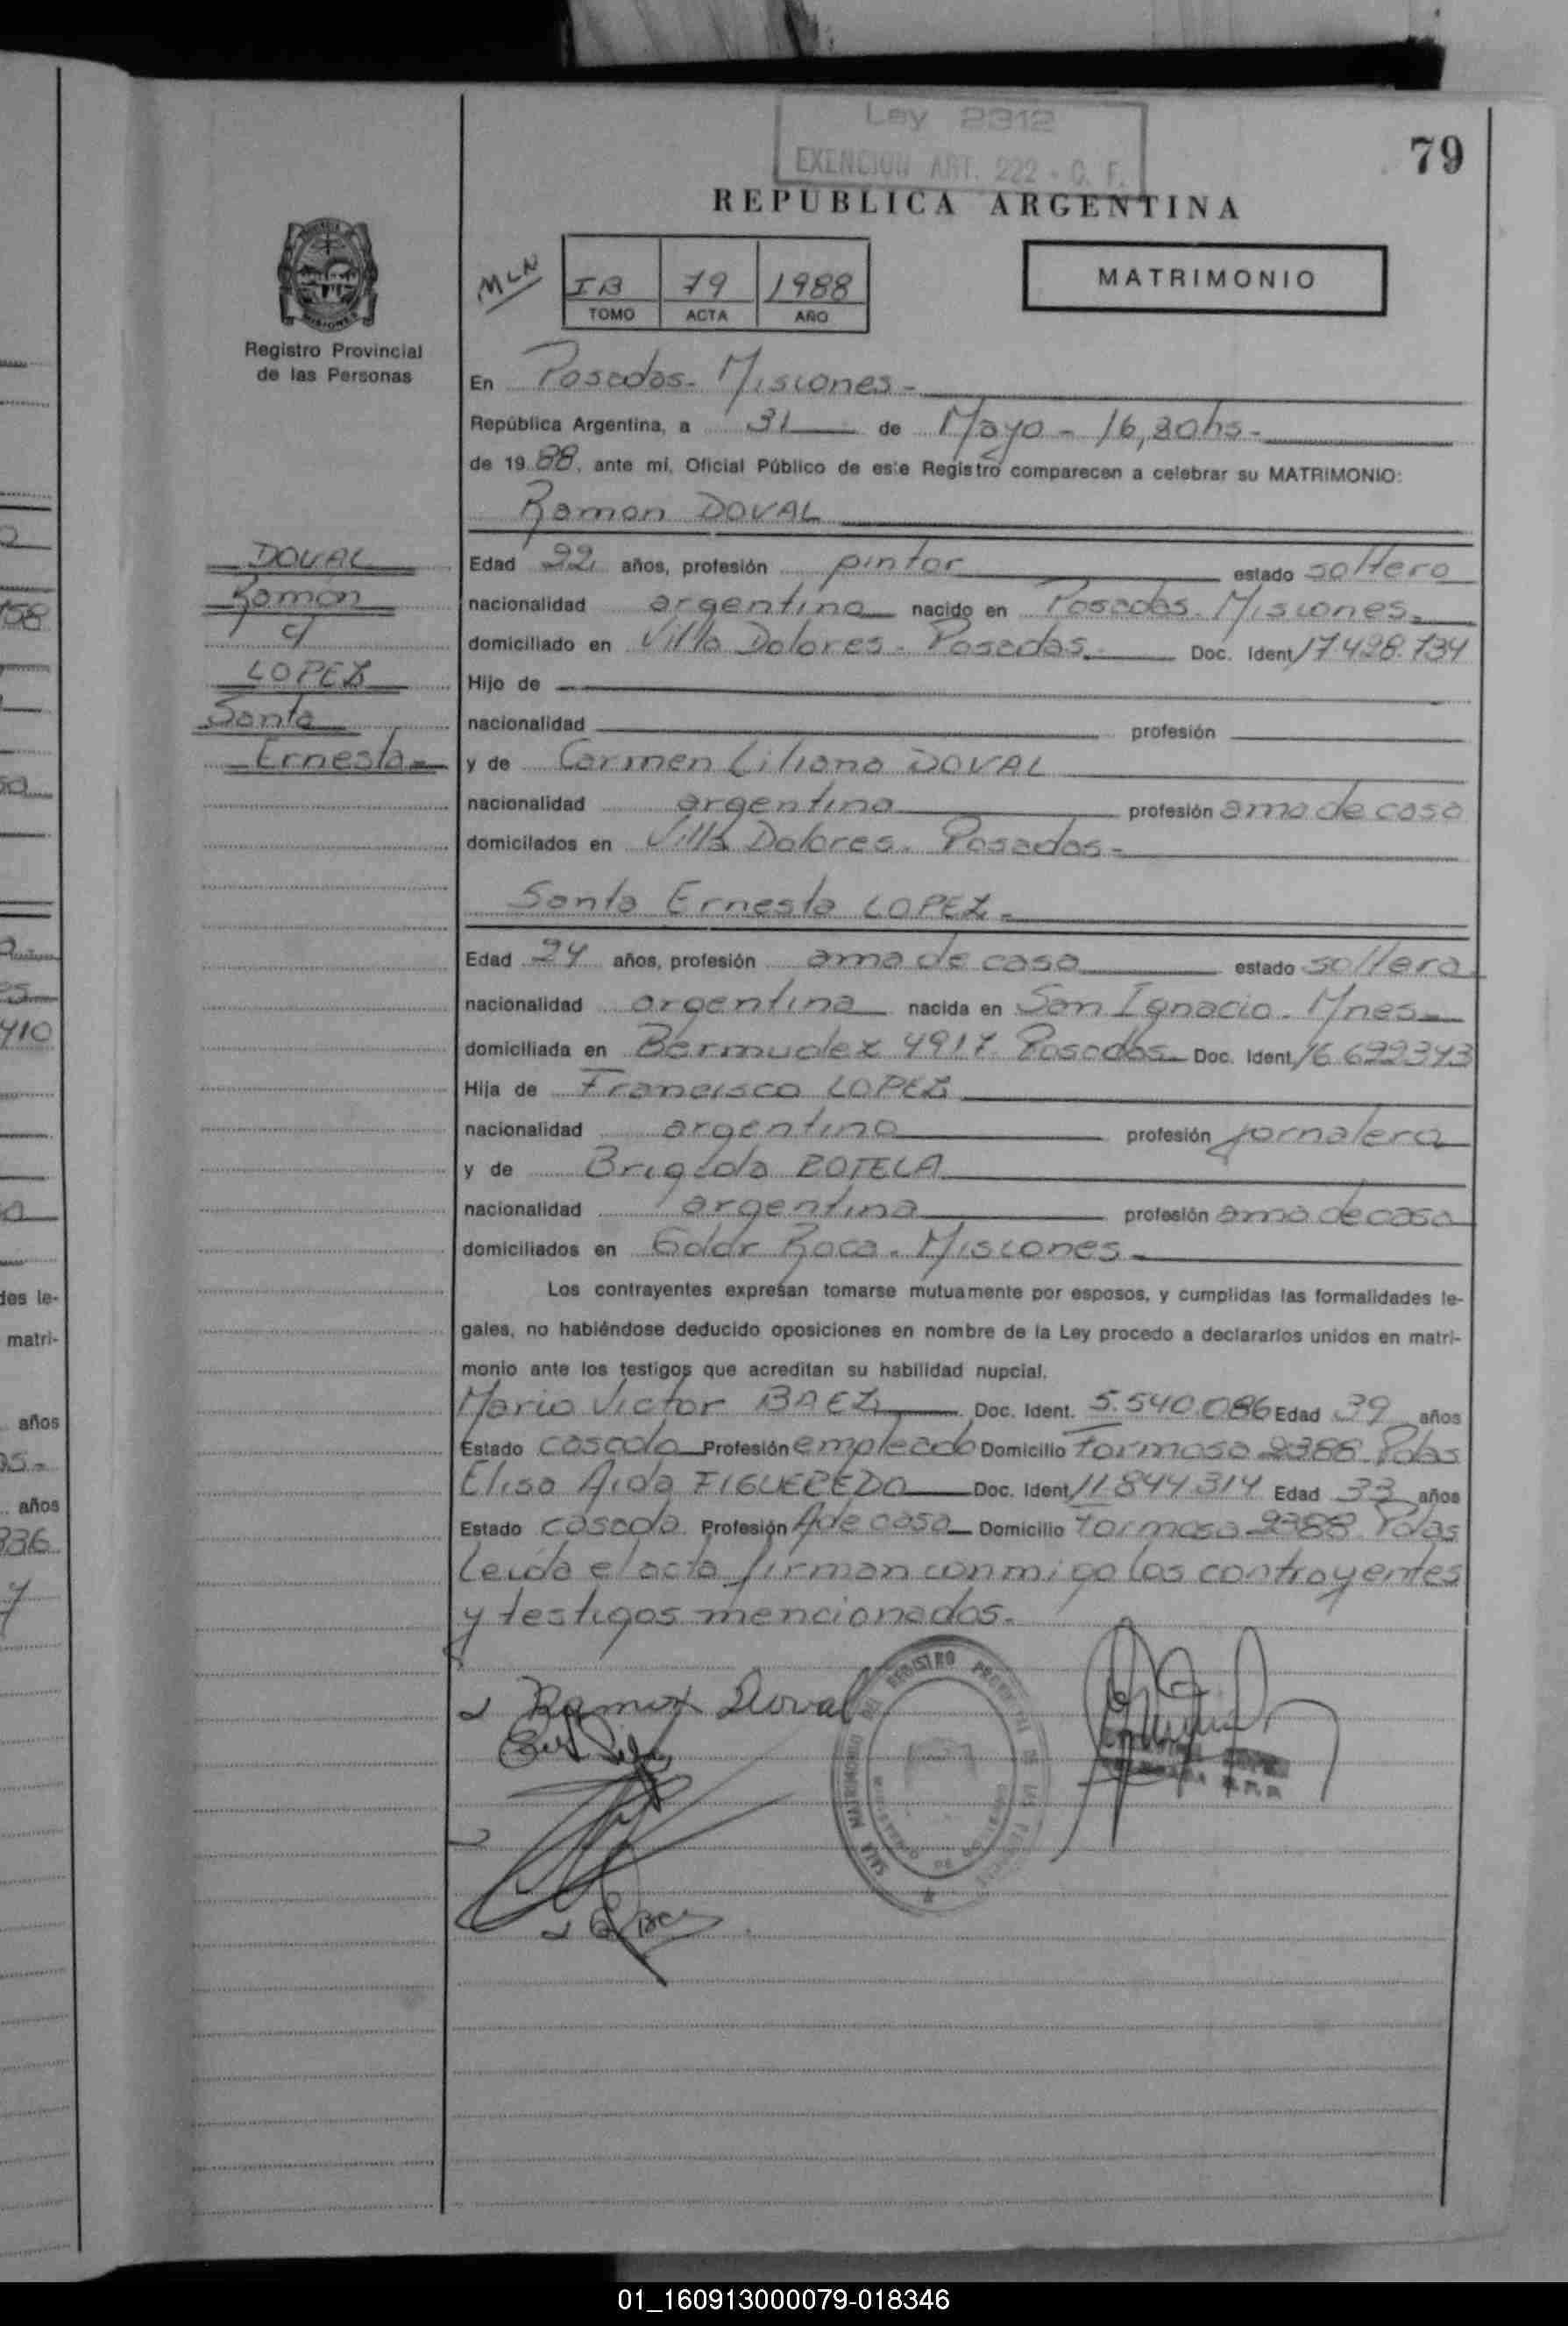 Ley 2312
EXENCION ART. 222 - C. F.
79
REPUBLICA ARGENTINA
MLN
IB 79 1988
TOMO ACTA AÑO
MATRIMONIO
MISIONES
Registro Provincial
de las Personas
En Posadas- Misiones-
República Argentina, a 31 de Mayo - 16,30hs-
de 1988, ante mí, Oficial Público de este Registro comparecen a celebrar su MATRIMONIO:
Ramon DOVAL
DOVAL
Ramón
c/
LOPEZ
Santa
Ernesta-
Edad 22 años, profesión pintor estado soltero
nacionalidad argentina nacido en Posadas- Misiones-
domiciliado en Villa Dolores- Posadas- Doc. Ident 17.428.734
Hijo de
nacionalidad profesión
y de Carmen Liliana DOVAL
nacionalidad argentina profesión ama de casa
domicilados en Villa Dolores- Posadas-
Santa Ernesta LOPEZ-
Edad 24 años, profesión ama de casa estado soltera
nacionalidad argentina nacida en San Ignacio- Mnes-
domiciliada en Bermudez 4917 Posadas- Doc. Ident 16.622343
Hija de Francisco LOPEZ
nacionalidad argentino profesión jornalero
y de Brigida ROTELA
nacionalidad argentina profesión ama de casa
domiciliados en Gdor Roca- Misiones-
Los contrayentes expresan tomarse mutuamente por esposos, y cumplidas las formalidades le-
gales, no habiéndose deducido oposiciones en nombre de la Ley procedo a declararlos unidos en matri-
monio ante los testigos que acreditan su habilidad nupcial.
Mario Victor BAEZ Doc. Ident. 5.540.086 Edad 39 años
Estado casado Profesión empleado Domicilio Formosa 2388 Pdas
Elisa Aida FIGUEREDO Doc. Ident 11.844314 Edad 33 años
Estado casada Profesión A de casa Domicilio Formosa 2388 Pdas
Leida el acta firman conmigo los contrayentes
y testigos mencionados-
Ramon Doval
SALA MATRIMONIO DEL REGISTRO PROVINCIAL DE LAS PERSONAS
des le-
matri-
años
años
01_160913000079-018346